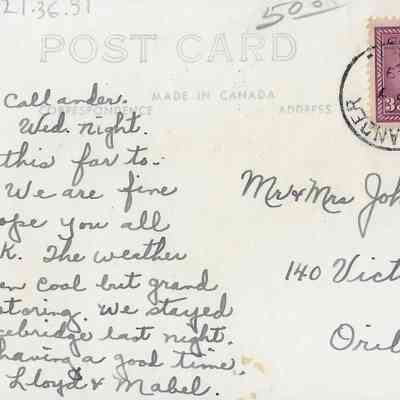 21.36.51
500
POST CARD
MADE IN CANADA
CORRESPONDENCE ADDRESS
Callander.
Wed. night.
this far to-
We are fine
ope you all
K. The weather
en cool but grand
otoring. We stayed
cebridge last night.
having a good time.
Lloyd & Mabel.
Mr & Mrs Joh
140 Vict
Oril
ANDER
3